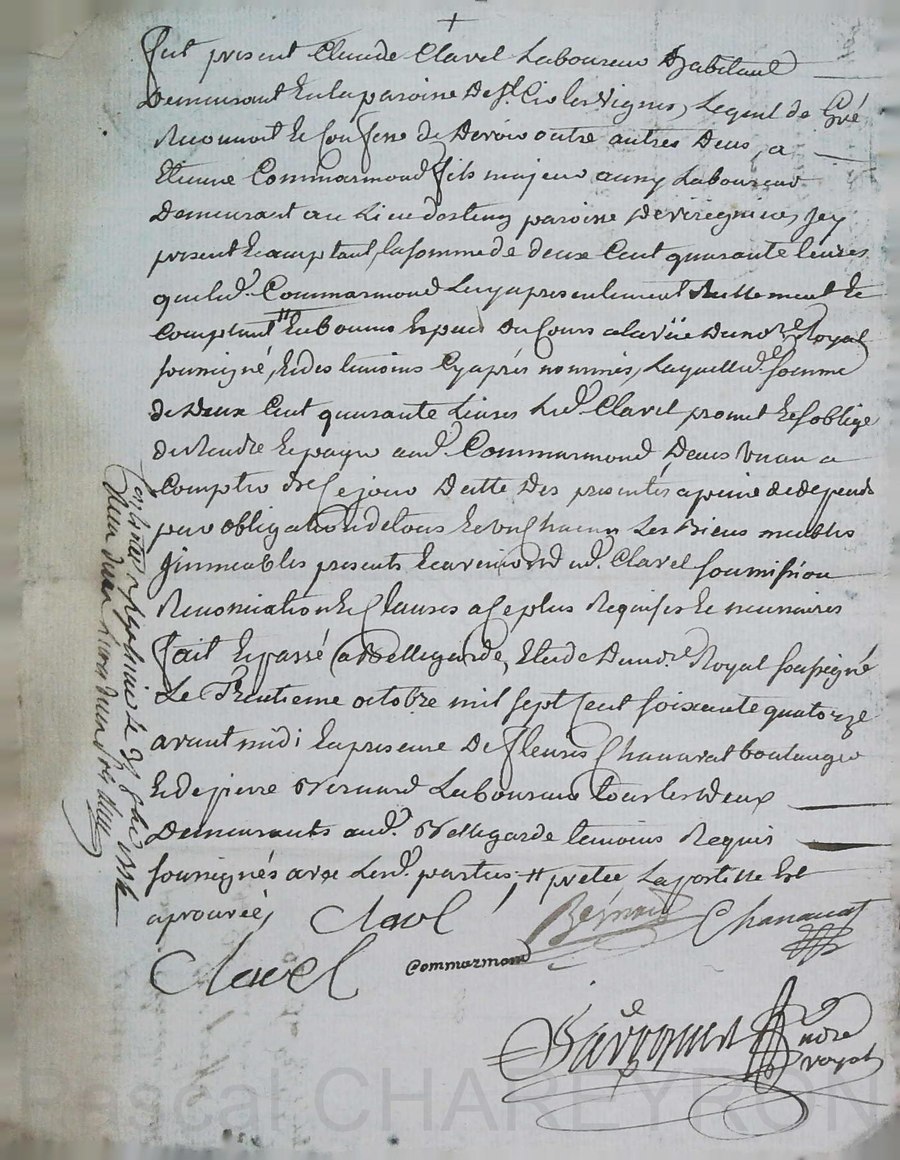 +
fut present Claude Clavel Laboureur habitant
Demeurant En la paroisse De St. Cir les Vignes, Lequel de Gré
Reconnoit Et Confesse de Devoir outre autres Deus, a
Etienne Commarmond fils majeur aussy Laboureur
Demeurant au Lieu paroisse jcy
present Acceptant, la somme de deux Cent quarante livres
que led. Commarmond Luy a presentement Et
Comptant # En bonnes Especes Du Cours a la vüe Du no.re Royal
soussigné, Et des temoins Cy aprés nommés, Laquelle d.e somme
de Deux Cent quarante Livres Led. Clavel promet Et s'oblige
de Rendre Et payer aud. Commarmond Dans Un an a
Compter de Ce jour Datte Des presentes a peine de depends
par obligation de tous Et Un Chacun Ses Biens meubles
jmmeubles presents Et avenir dud. Clavel soumission
Renonciation Et Clauses a Ce plus Requises Et necessaires
fait Et passé a Bellegarde, Etude Du no.re Royal soussigné
Le Trentieme octobre mil sept Cent soixante quatorze
avant midi En presence De fleuris Chanavat boulanger
Et de pierre Bernard Laboureur tous les deux
Demeurants aud. Bellegarde temoins Requis
soussignés avec Lesd. parties, # pretée La postille Est
aprouvée,
Clavel
Bernard
Chanavat
Clavel
Commarmond
no.re royal
Pascal CHAREYRON